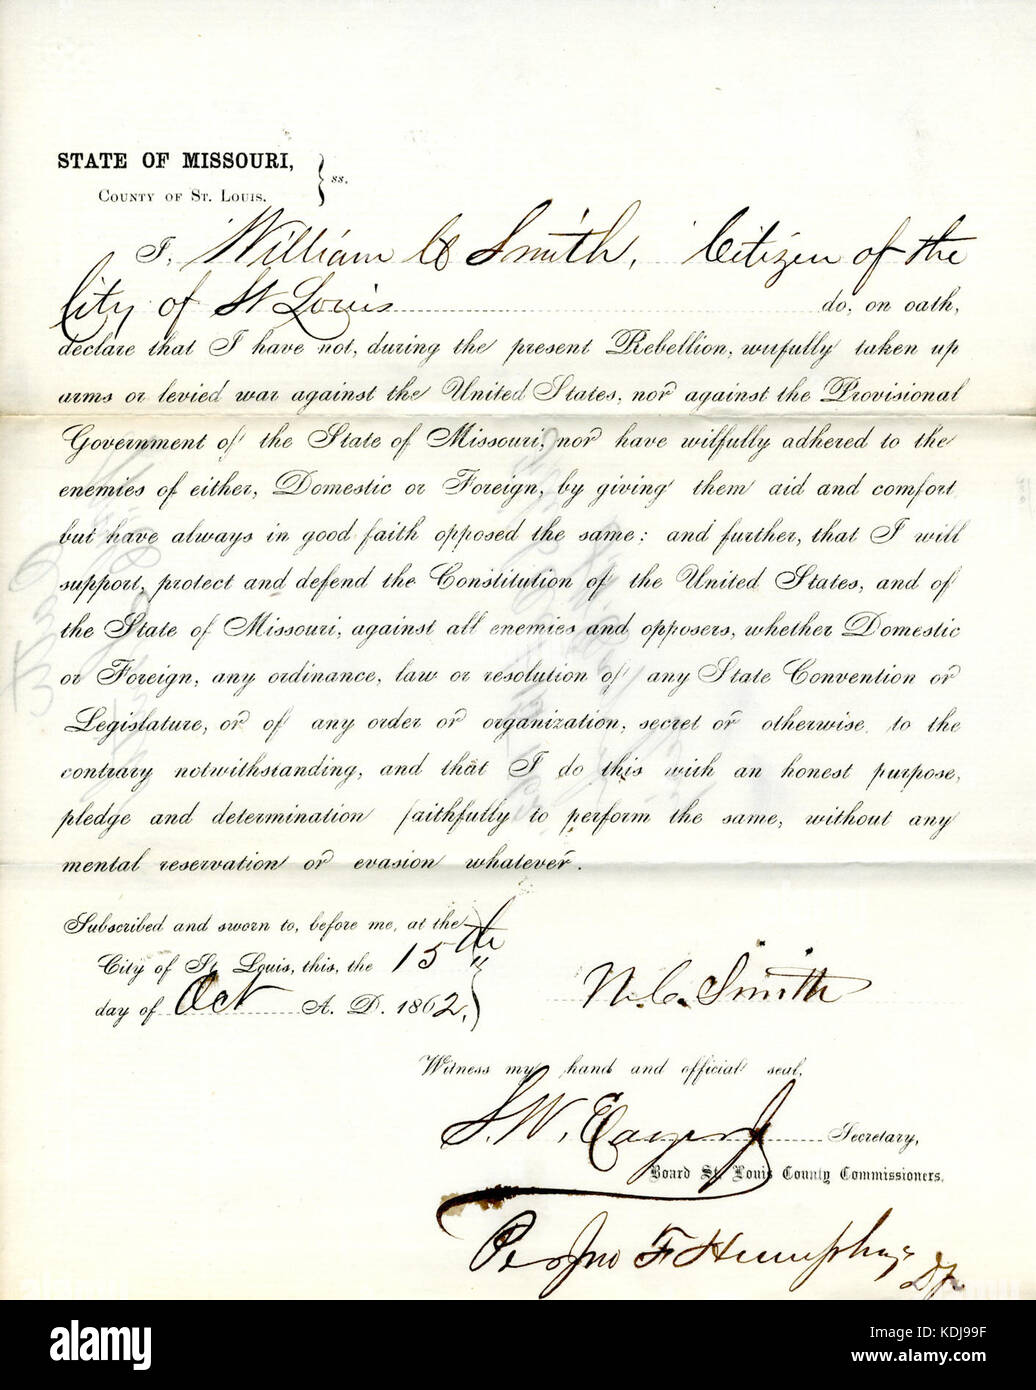 STATE OF MISSOURI,
COUNTY OF ST. LOUIS.
ss.
I, William C Smith, Citizen of the
City of St Louis do, on oath,
declare that I have not, during the present Rebellion, wilfully taken up
arms or levied war against the United States, nor against the Provisional
Government of the State of Missouri, nor have wilfully adhered to the
enemies of either, Domestic or Foreign, by giving them aid and comfort
but have always in good faith opposed the same; and further, that I will
support, protect and defend the Constitution of the United States, and of
the State of Missouri, against all enemies and opposers, whether Domestic
or Foreign, any ordinance, law or resolution of any State Convention or
Legislature, or of any order or organization, secret or otherwise, to the
contrary notwithstanding, and that I do this with an honest purpose,
pledge and determination faithfully to perform the same, without any
mental reservation or evasion whatever.
Subscribed and sworn to, before me, at the
City of St Louis, this, the 15th
day of Oct A. D. 1862.
W. C. Smith
Witness my hand and official seal,
S. W. Eager Jr Secretary,
Board St. Louis County Commissioners.
Per Jno F Humphreys
alamy
Image ID: KDJ99F
www.alamy.com